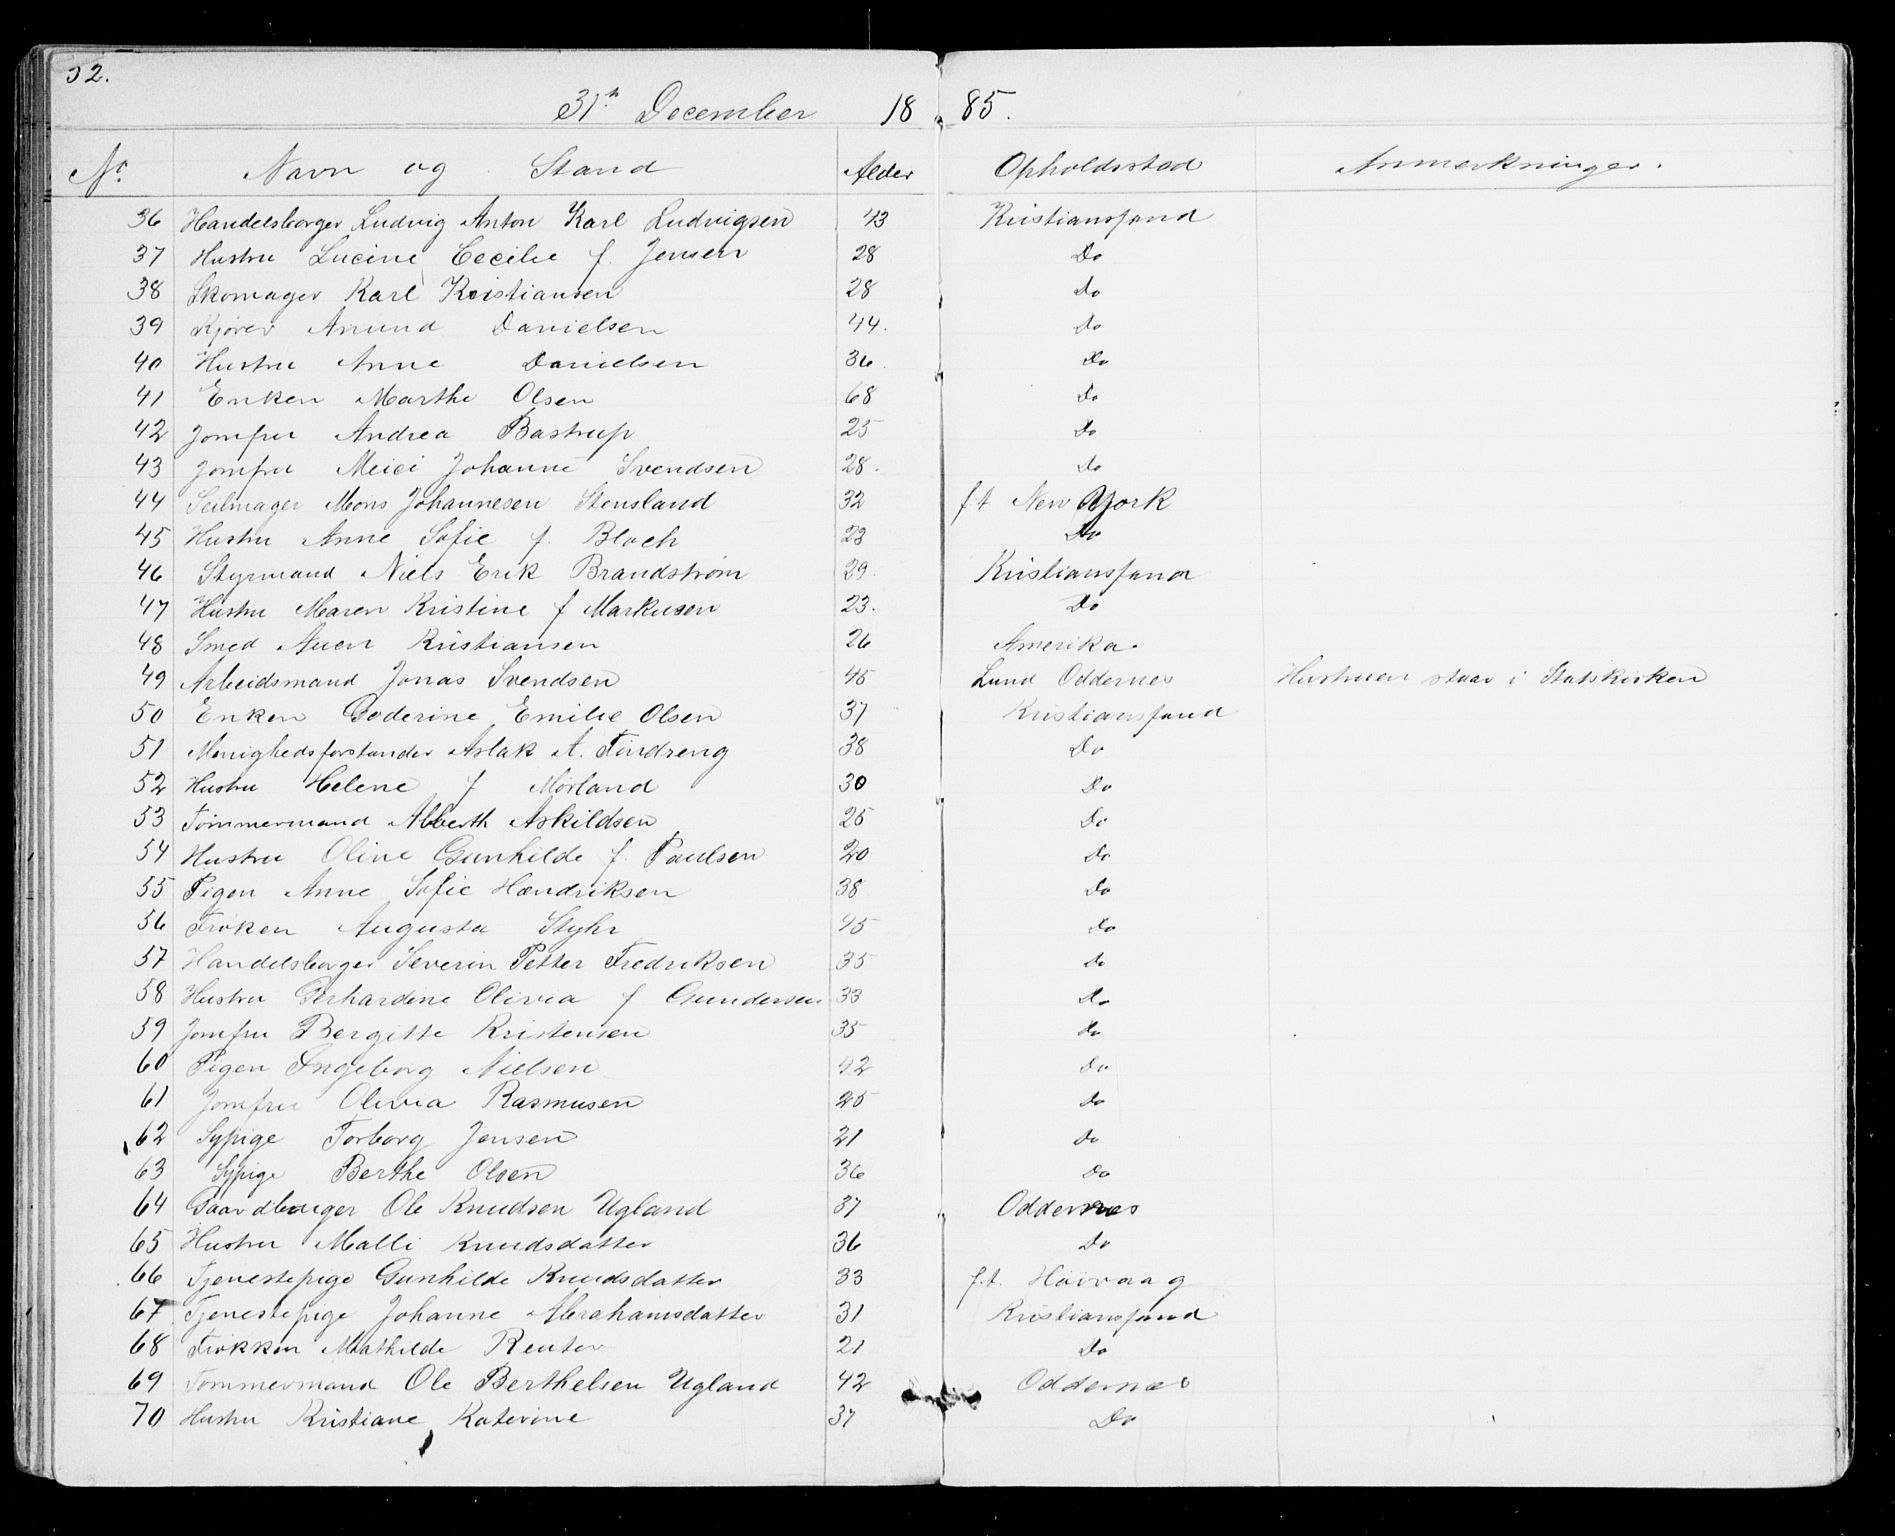 32.
31th December 1885.
No. Navn og Stand Alder Opholdssted Anmerkninger.
36 Handelsborger Ludvig Anton Karl Ludvigsen 43 Kristianssand
37 Hustru Lucine Cecilie f. Jensen 28 Do
38 Skomager Karl Kristiansen 28 Do
39 Kjører Anund Danielsen 44. Do
40 Hustru Anne Danielsen 36. Do
41 Enken Marthe Olsen 68 Do
42 Jomfru Andrea Bastrup 25 Do
43 Jomfru Meici Johanne Svendsen 28. Do
44 Seilmager Mons Johannesen Stensland 32 f.t New York
45 Hustru Anne Sofie f. Bloch 23 Do
46 Styrmand Niels Erik Brandstrøm 29. Kristianssand
47 Hustru Maren Kristine f Markusen 23. Do
48 Smed Kristiansen 26 Amerika.
49 Arbeidsmand Jonas Svendsen 45 Lund Oddernes Hustruen staar i Statskirken
50 Enken Goderine Emilie Olsen 37 Kristianssand
51 Menighedsforstander Aslak A. Findreng 38 Do
52 Hustru Helene f Mørland 30 Do
53 Tømmermand Alberth Askildsen 25 Do
54 Hustru Oline Gunhilde f. Paulsen 20 Do
55 Pigen Anne Sofie Hendriksen 38 Do
56 Frøken Augusta Styhr 45 Do
57 Handelsborger Severin Petter Fredriksen 35 Do
58 Hustru Gerhardine Olivia f Gundersen 33 Do
59 Jomfru Bergitte Kristensen 35 Do
60 Pigen Ingeborg Nielsen 42 Do
61 Jomfru Olivia Rasmusen 25 Do
62 Sypige Torborg Jensen 21 Do
63 Sypige Berthe Olsen 36 Do
64 Gaardbruger Ole Knudsen Ugland 37 Oddernes
65 Hustru Malli Knudsdatter 36 Do
66 Tjenestepige Gunhilde Knudsdatter 33 f.t. Høivaag
67 Tjenestepige Johanne Abrahamsdatter 31 Kristianssand
68 Frøkken Mathilde Reuter 21 Do
69 Tømmermand Ole Berthelsen Ugland 42 Oddernes
70 Hustru Kristiane Katerine 37 Do